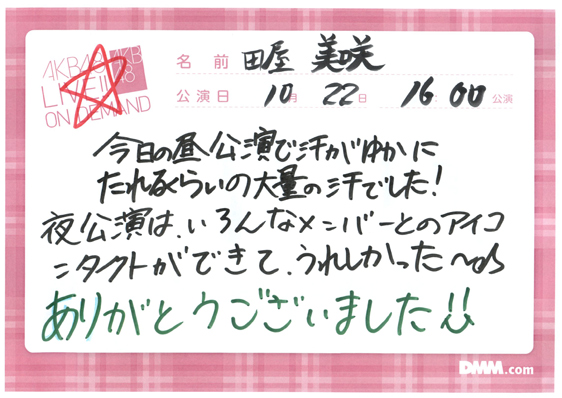 AKB48
LIVE!!
ON DEMAND
AKB
48
名前 田屋 美咲
公演日 10月 22日 16:00 公演
今日の昼公演で汗がゆかに
たれるくらいの大量の汗でした!
夜公演は、いろんなメンバーとのアイコ
ンタクトができて、うれしかった〜
ありがとうございました!!
DMM.com